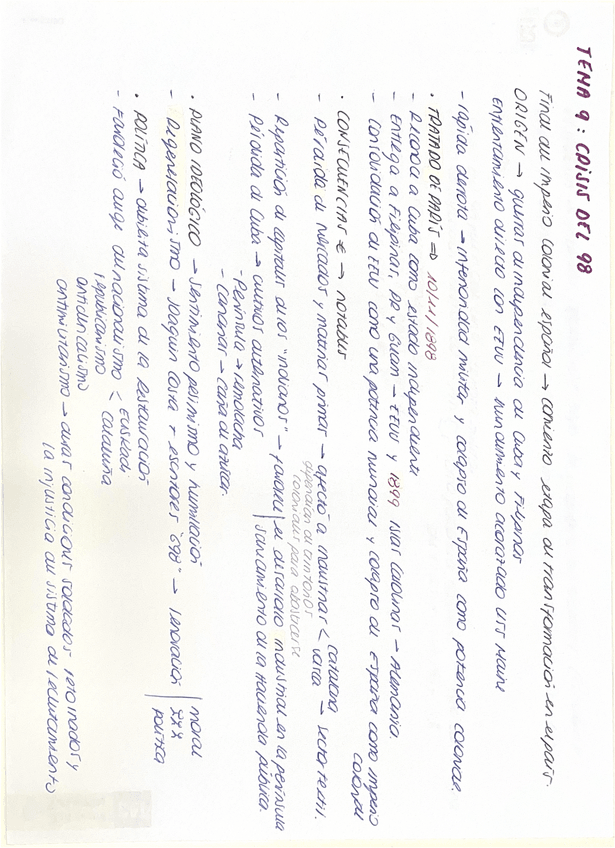 TEMA 9: CRISIS DEL 98
Final del imperio colonial español → comienzo etapa de transformación en el país.
ORIGEN → guerras de independencia de Cuba y Filipinas
enfrentamiento directo con EEUU → hundimiento acorazado USS Maine
- rápida derrota → inferioridad militar y colapso de España como potencia colonial.
• TRATADO DE PARÍS ⇒ 10/12/1898
- Reconoce a Cuba como estado independiente
- Entrega a Filipinas, PR y Guam → EEUU y 1899 Islas Carolinas → Alemania.
- Consolidación de EEUU como una potencia mundial y colapso de España como imperio
colonial
• CONSECUENCIAS € → notables
- Pérdida de mercados y materias primas → afectó a industrias < catalana
vasca → sector textil.
dependían de territorios
coloniales para abastecerse
- Repatriación de capitales de los "indianos" → favorece | el desarrollo industrial en la península
saneamiento de la Hacienda pública.
- Pérdida de Cuba → cultivos alternativos
- Península → remolacha
- Canarias → caña de azúcar.
• PLANO IDEOLÓGICO → sentimiento pesimismo y humillación
- Regeneracionismo → Joaquín Costa + escritores "G98" → renovación | moral
política
• POLÍTICA → debilita sistema de la restauración
- Favoreció auge del nacionalismo < Euskadi
Cataluña
republicanismo
anticlericalismo
antimilitarismo → duras condiciones soldados retornados y
la injusticia del sistema de reclutamiento